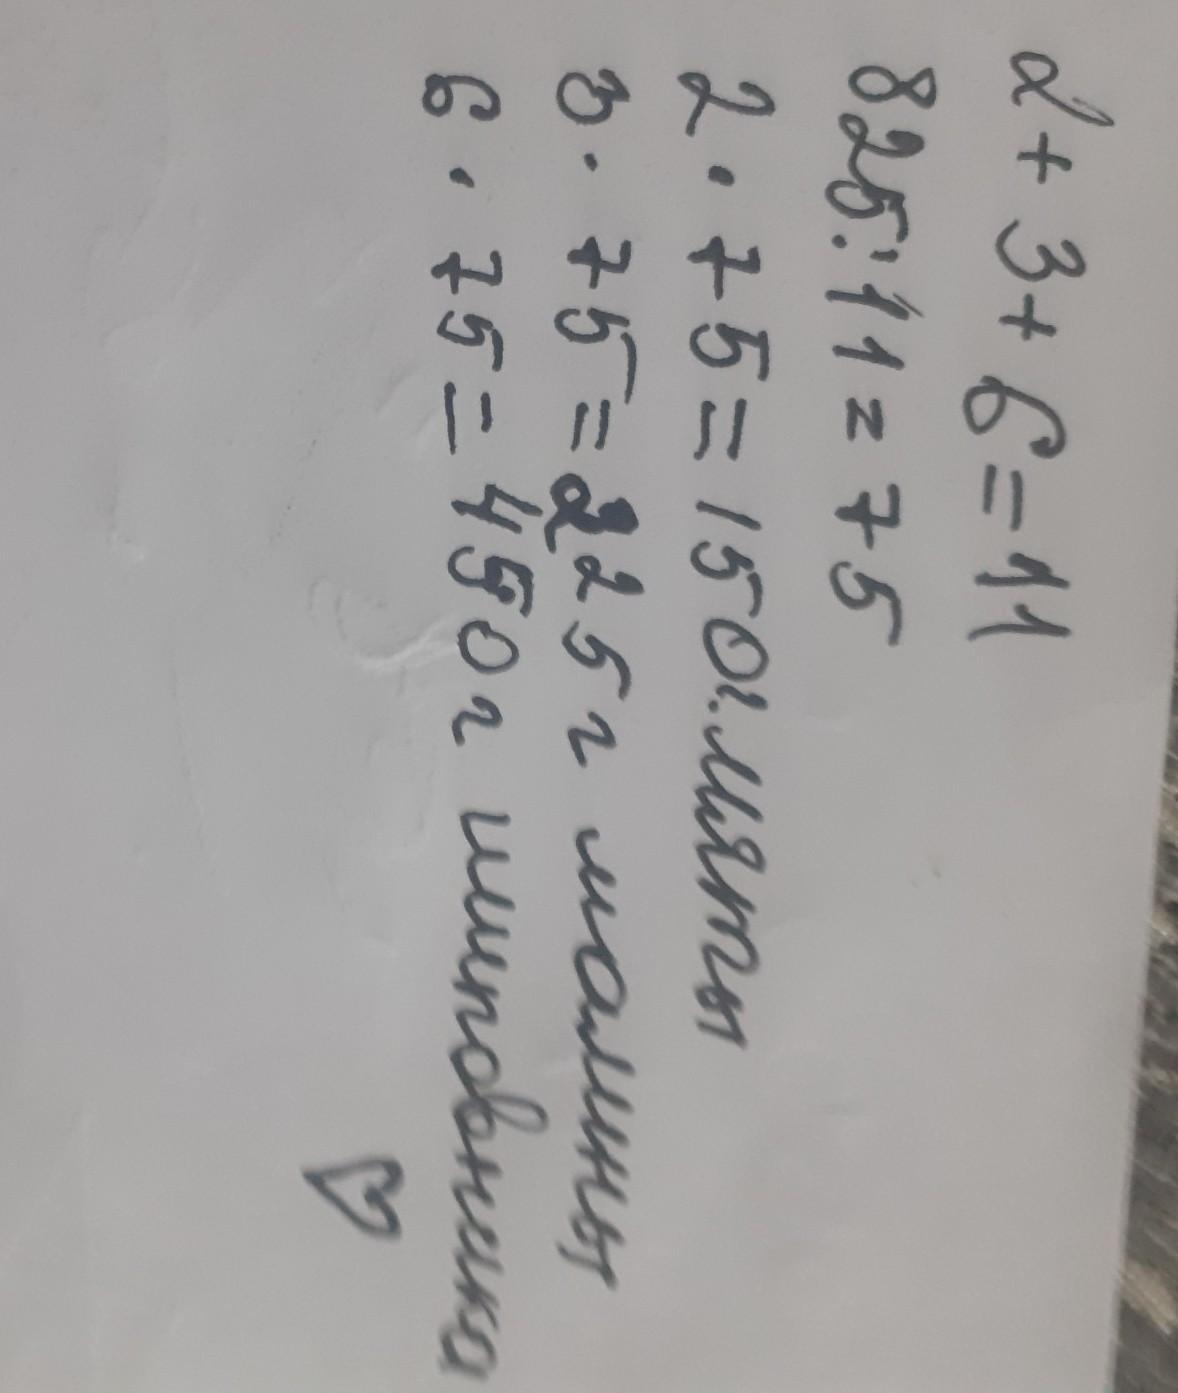 2+3+6=11
825:11=75
2·75=150г.мяты
3·75=225г малины
6·75=450г шиповника